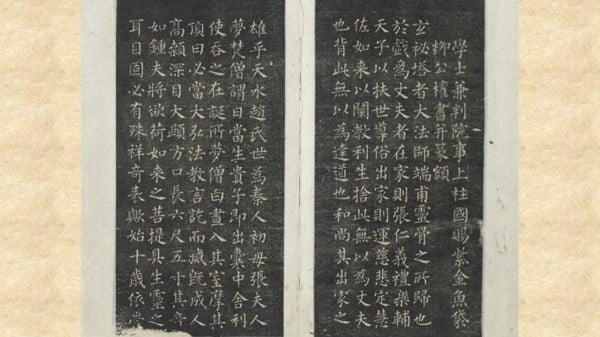 學士兼判院事上柱國賜紫金魚袋
柳公權書并篆額
玄祕塔者大法師端甫靈骨之所歸也
於戲為丈夫者在家則張仁義禮樂輔
天子以扶世導俗出家則運慈悲定慧
佐如來以闡教利生捨此無以為丈夫
也背此無以為達道也和尚其出家之
雄乎天水趙氏世為秦人初母張夫人
夢梵僧謂曰當生貴子即出囊中舍利
使吞之誕所夢僧白晝入其室摩其
頂曰必當大弘法教言訖而滅既成人
高顙深目大頤方口長六尺五寸其音
如鍾夫將欲荷如來之菩提生靈之
耳目固必有殊祥奇表歟始十歲依